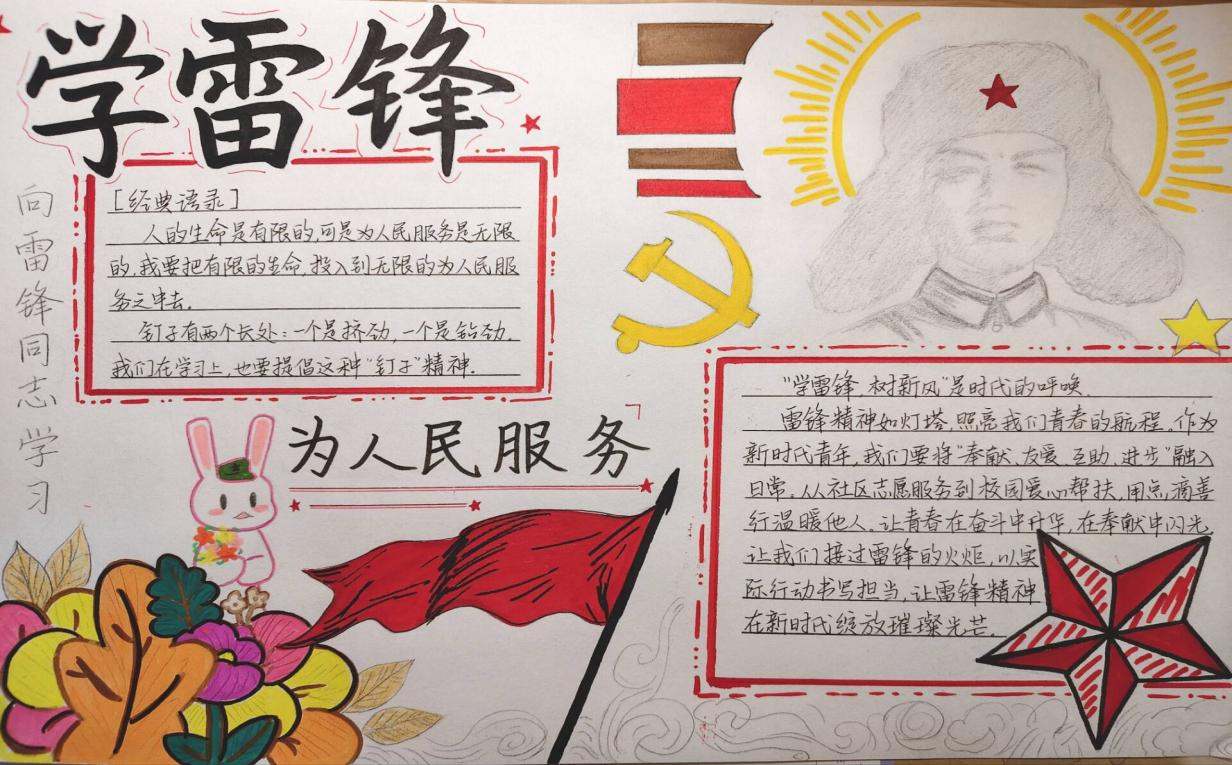 学雷锋
向雷锋同志学习
[经典语录]
人的生命是有限的,可是为人民服务是无限
的,我要把有限的生命,投入到无限的为人民服
务之中去.
钉子有两个长处:一个是挤劲,一个是钻劲.
我们在学习上,也要提倡这种"钉子"精神.
为人民服务
"学雷锋,树新风"是时代的呼唤.
雷锋精神如灯塔,照亮我们青春的航程。作为
新时代青年,我们要将"奉献、友爱、互助、进步"融入
日常。从社区志愿服务到校园爱心帮扶,用点滴善
行温暖他人。让青春在奋斗中升华,在奉献中闪光
让我们接过雷锋的火炬,以实
际行动书写担当,让雷锋精神
在新时代绽放璀璨光芒.